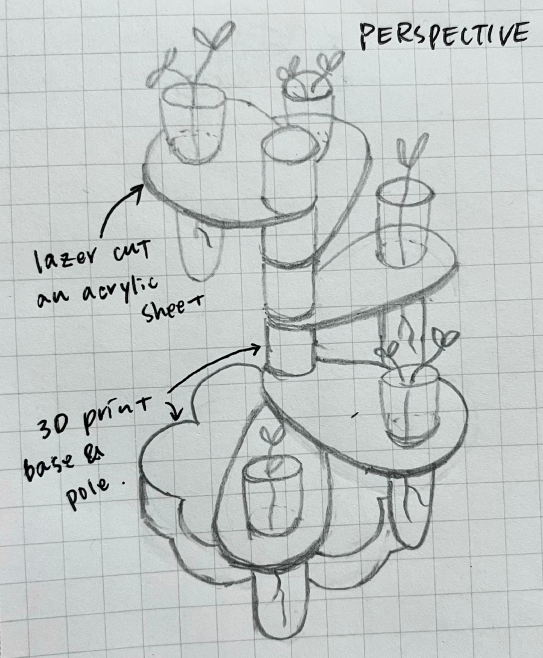 PERSPECTIVE
lazer cut
an acrylic
sheet
3D print
base &
pole.